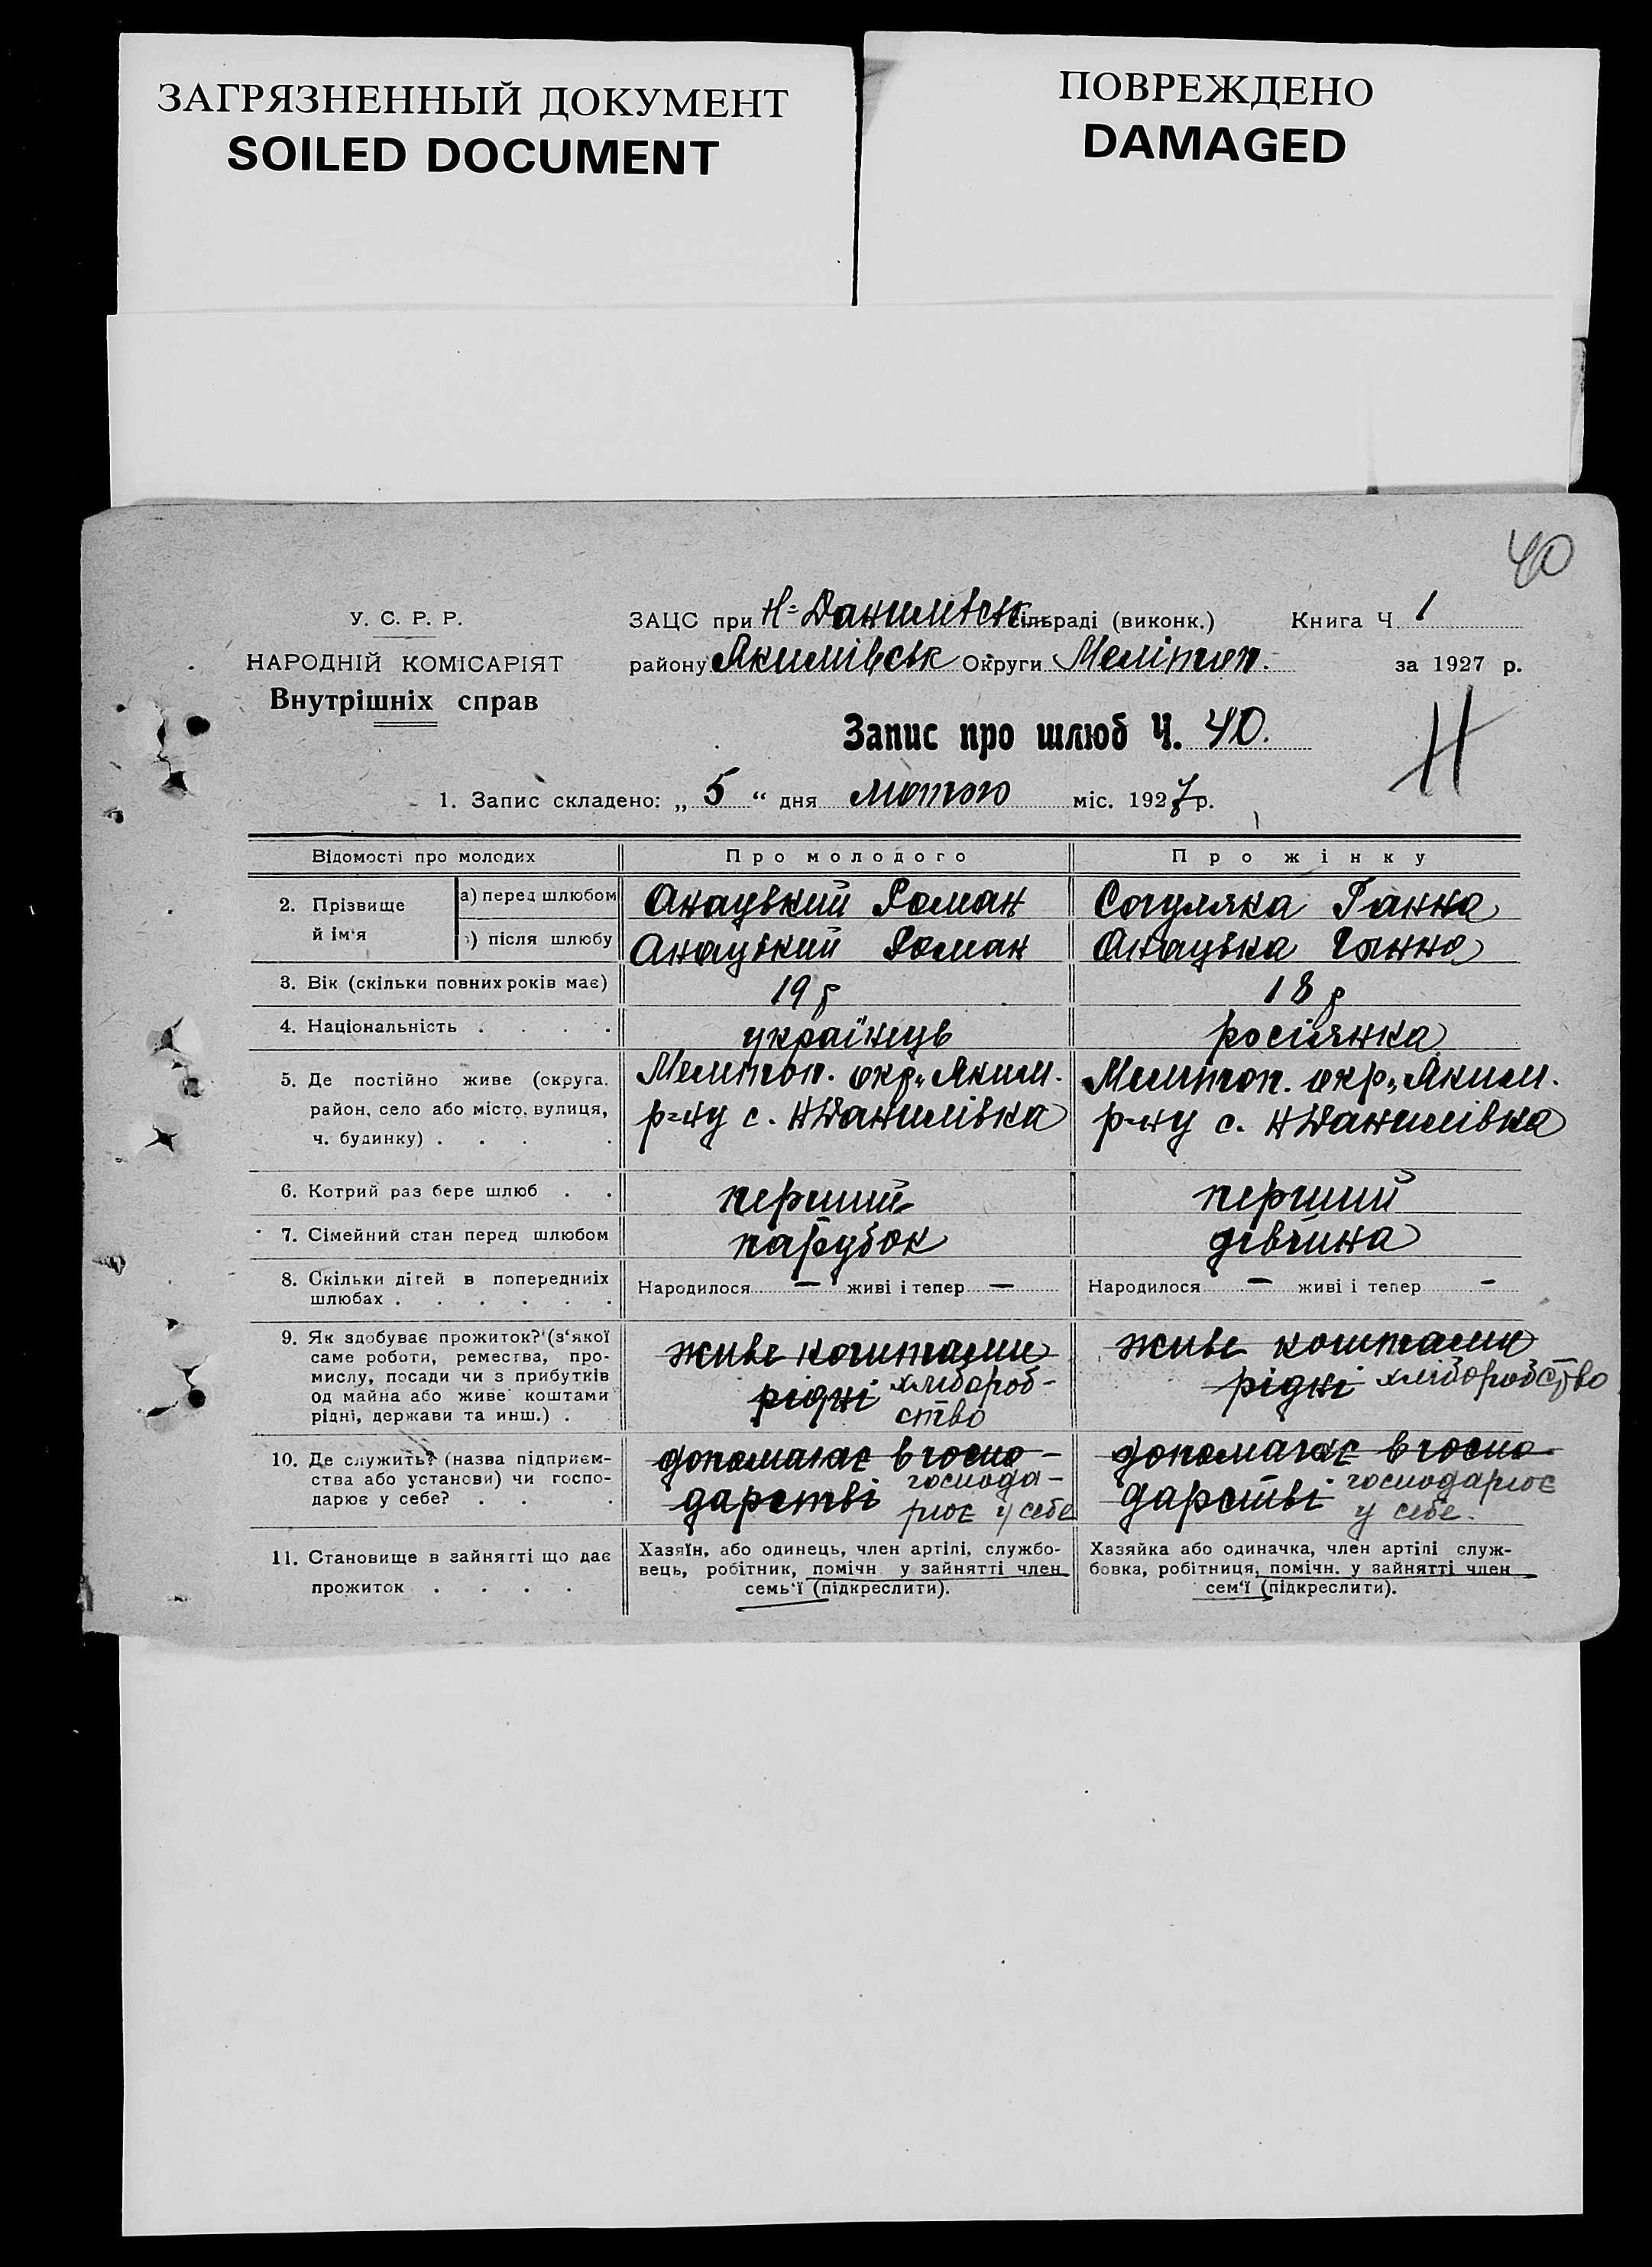 ЗАГРЯЗНЕННЫЙ ДОКУМЕНТ
SOILED DOCUMENT
ПОВРЕЖДЕНО
DAMAGED
40
У. С. Р. Р.
НАРОДНІЙ КОМІСАРІЯТ
Внутрішніх справ
ЗАЦС при Н-Данилівськ сільраді (виконк.) Книга Ч. 1
району Якимівськ Округи Мелітоп. за 1927 р.
Запис про шлюб Ч. 40.
Н
1. Запис складено: „ 5 “ дня лютого міс. 1927 р.
Відомості про молодих Про молодого Про жінку
2. Прізвище й ім'я
а) перед шлюбом Анацький Роман Согуляка Ганна
в) після шлюбу Анацький Роман Анацька Ганна
3. Вік (скільки повних років має) 19 р 18 р
4. Національність . . . . українець росіянка
5. Де постійно живе (округа, Мелитоп. окр., Яким. Мелитоп. окр., Яким.
район, село або місто, вулиця, р-ну с. НДанилівка р-ну с. НДанилівка
ч. будинку) . . . .
6. Котрий раз бере шлюб . . перший перший
7. Сімейний стан перед шлюбом парубок дівчина
8. Скільки дітей в попередниіх Народилося — живі і тепер — Народилося — живі і тепер -
шлюбах . . . . . .
9. Як здобуває прожиток? (з'якої живе коштами живе коштами
саме роботи, ремества, про-
мислу, посади чи з прибутків рідні хлібороб- рідні хліборобство
од майна або живе коштами ство
рідні, держави та инш.) .
10. Де служить? (назва підприєм- допомагає в госпо- допомагає в госпо-
ства або установи) чи госпо- дарстві господа- дарстві господарює
дарює у себе? . . . рює у себе у себе.
11. Становище в зайнятті що дає Хазяїн, або одинець, член артілі, службо- Хазяйка або одиначка, член артілі служ-
прожиток . . . . вець, робітник, помічн. у зайнятті член бовка, робітниця, помічн. у зайнятті член
семь'ї (підкреслити). сем'ї (підкреслити).